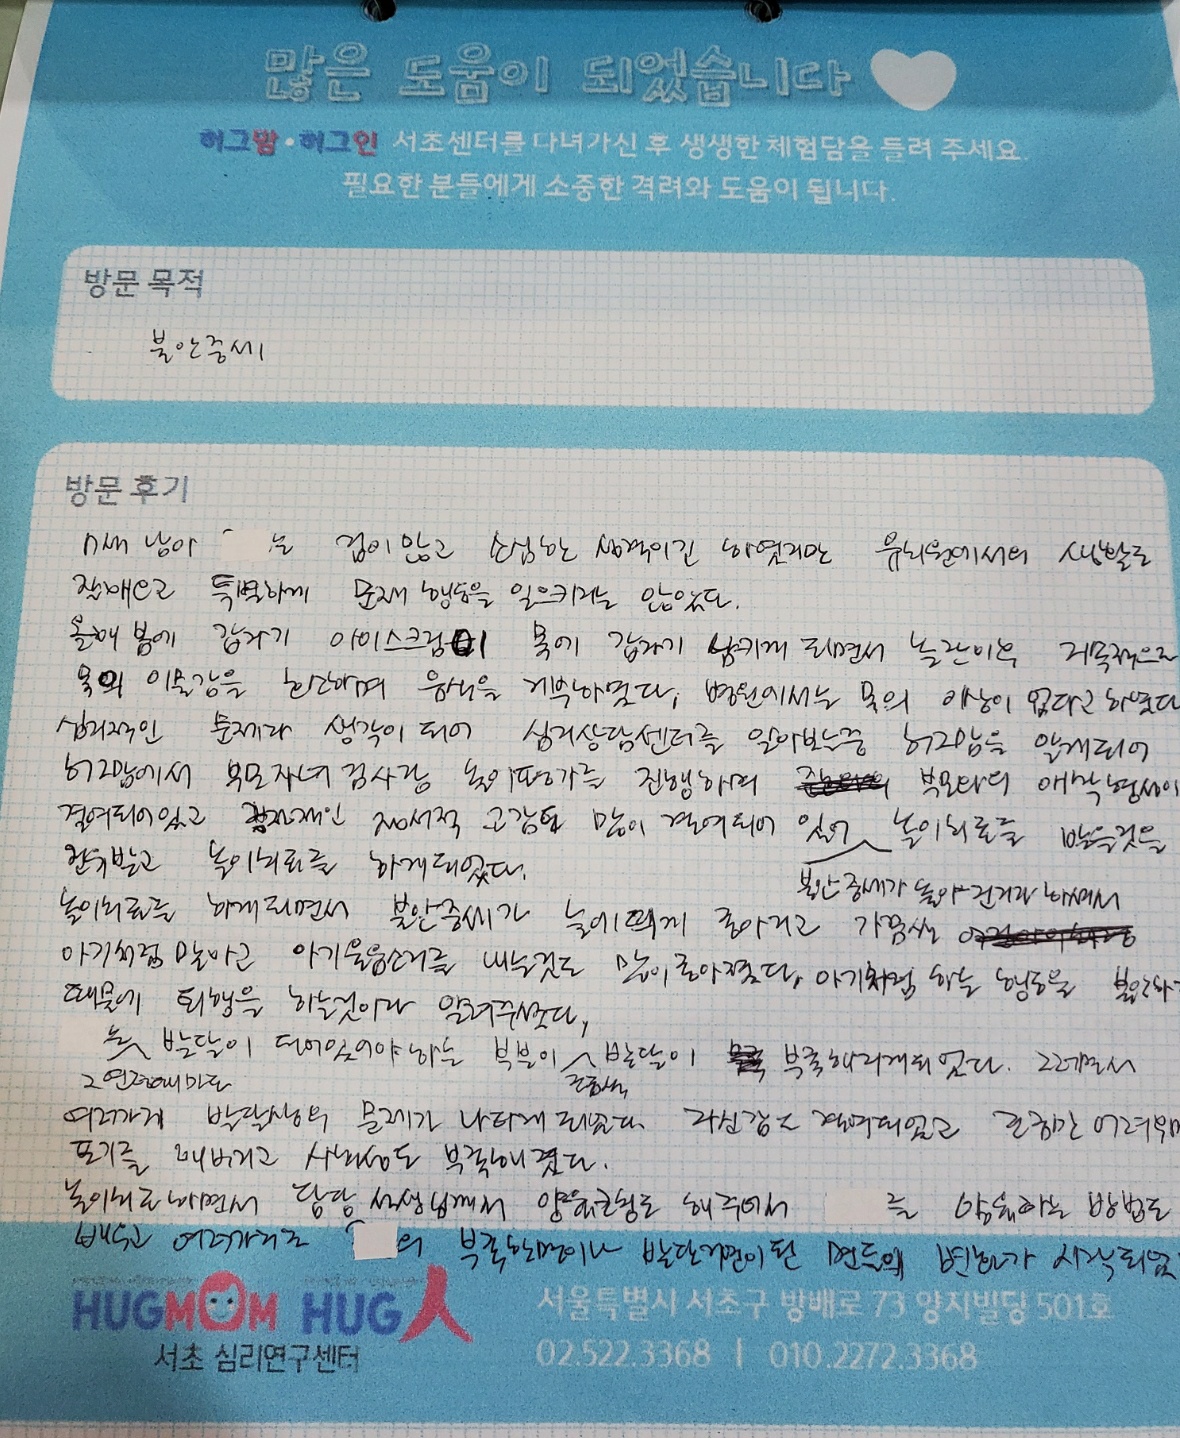 많은 도움이 되었습니다
허그맘•허그인 서초센터를 다녀가신 후 생생한 체험담을 들려 주세요.
필요한 분들에게 소중한 격려와 도움이 됩니다.
방문 목적
불안증세
방문 후기
남아 는 겁이 많고 소심한 성격이긴 하였지만 유치원에서의 생활도
잘해으고 특별하게 문제 행동을 일으키지는 않았다.
올해 봄에 갑자기 아이스크림이 목에 갑자기 삼키게 되면서 놀란이후 지속적으로
목의 이물감을 호소하며 음식을 거부하였다, 병원에서는 목의 이상이 없다고 하였다
심리적인 문제라 생각이 되어 심리상담센터를 알아보는중 허그맘을 알게되어
허그맘에서 부모자녀검사랑 놀이평가를 진행하며 부모와의 애착형성이
결여되어있고 정서적 교감도 많이 결여되어 있어 놀이치료를 받을것을
권유받고 놀이치료를 하게되었다.
불안증세가 높아진거라 하셔서
놀이치료를 하게되면서 불안증세가 눈에띄게 좋아지고 가끔씩
아기처럼 말하고 아기울음소리를 내는것도 많이좋아졌다, 아기처럼 하는 행동을 불안하기
때문에 퇴행을 하는것이라 알려주셨다,
는 발달이 되어있어야하는 부분이 발달이 부족해지게되었다. 그러면서
그연령때마다
여러가지 발달상의 문제가 나타게 되었다. 자신감도 결여되었고 조금만 어려우면
포기를 해버리고 사회성도 부족해졌다.
놀이치료하면서 담당 선생님께서 양육코칭도 해주셔서 를 양육하는 방법도
배우고 여러가지로 의 부족한면이나 발달지연이된 면들의 변화가 시작되었
HUGMOM HUG人
서초 심리연구센터
서울특별시 서초구 방배로 73 양지빌딩 501호
02.522.3368 | 010.2272.3368